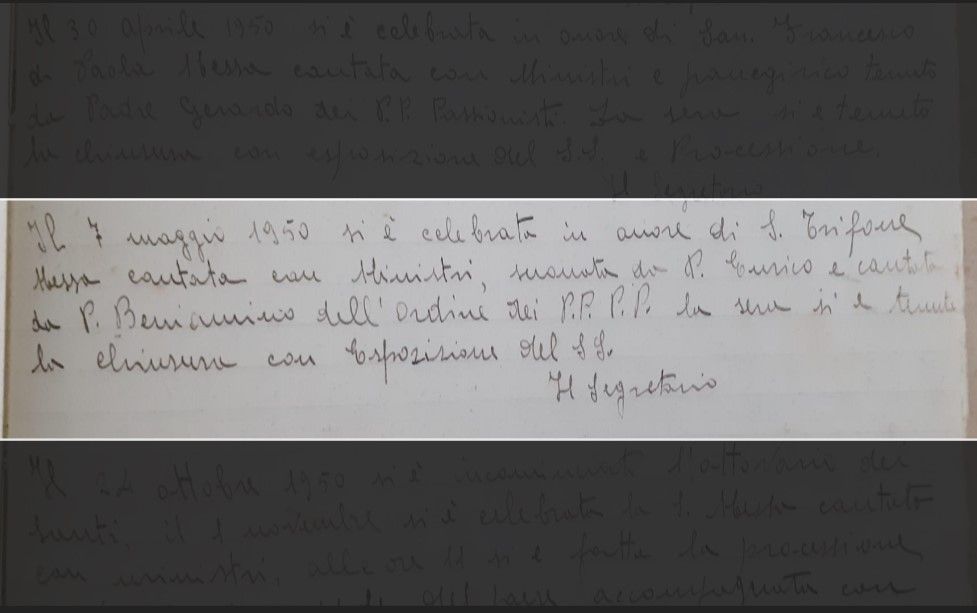 Il 30 Aprile 1950 si è celebrata in onore di San. Francesco
di Paola Messa cantata con Ministri e panegirico tenuto
da Padre Gerardo dei P.P. Passionisti. La sera si è tenuto
la chiusura con esposizione del S.S. e Processione.
Il Segretario
Il 7 maggio 1950 si è celebrata in onore di S. Trifone
Messa cantata con Ministri, suonata da P. Enrico e cantata
da P. Beniamino dell'Ordine dei P.P. P.P. la sera si è tenuta
la chiusura con Esposizione del S S.
Il Segretario
Il 24 ottobre 1950 si è incominciato l'ottavario dei
Santi, il 1 novembre si è celebrata la S. Messa cantata
con ministri, alle ore 11 si è fatta la processione
del paese accompagnata con